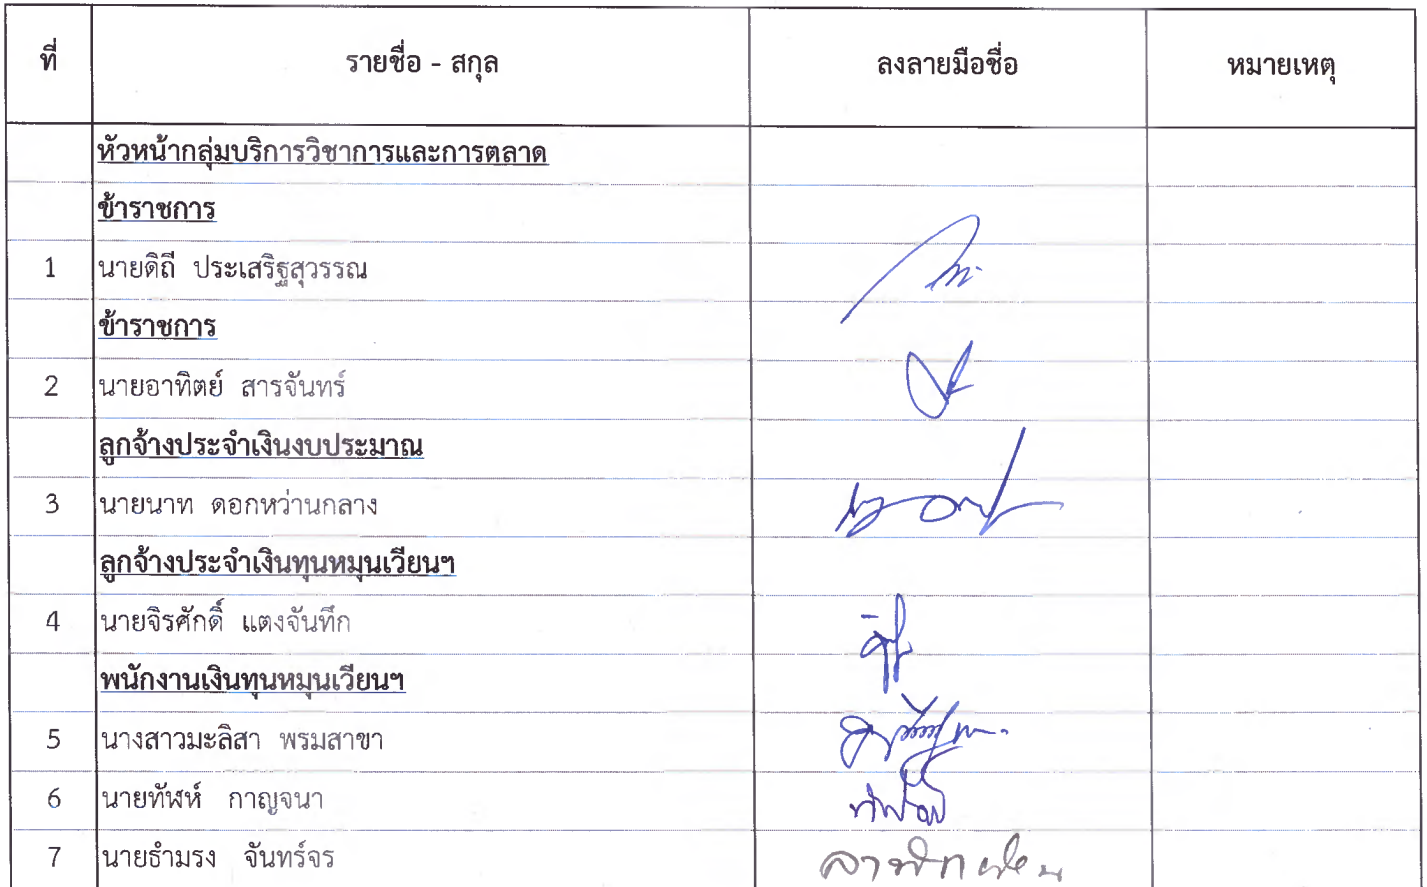 ที่ รายชื่อ - สกุล ลงลายมือชื่อ หมายเหตุ
หัวหน้ากลุ่มบริการวิชาการและการตลาด
ข้าราชการ
1 นายดิถี ประเสริฐสุวรรณ
ข้าราชการ
2 นายอาทิตย์ สารจันทร์
ลูกจ้างประจำเงินงบประมาณ
3 นายนาท ดอกหว่านกลาง
ลูกจ้างประจำเงินทุนหมุนเวียนฯ
4 นายจิรศักดิ์ แตงจันทึก
พนักงานเงินทุนหมุนเวียนฯ
5 นางสาวมะลิสา พรมสาขา
6 นายทัฬห์ กาญจนา
7 นายธำมรง จันทร์จร